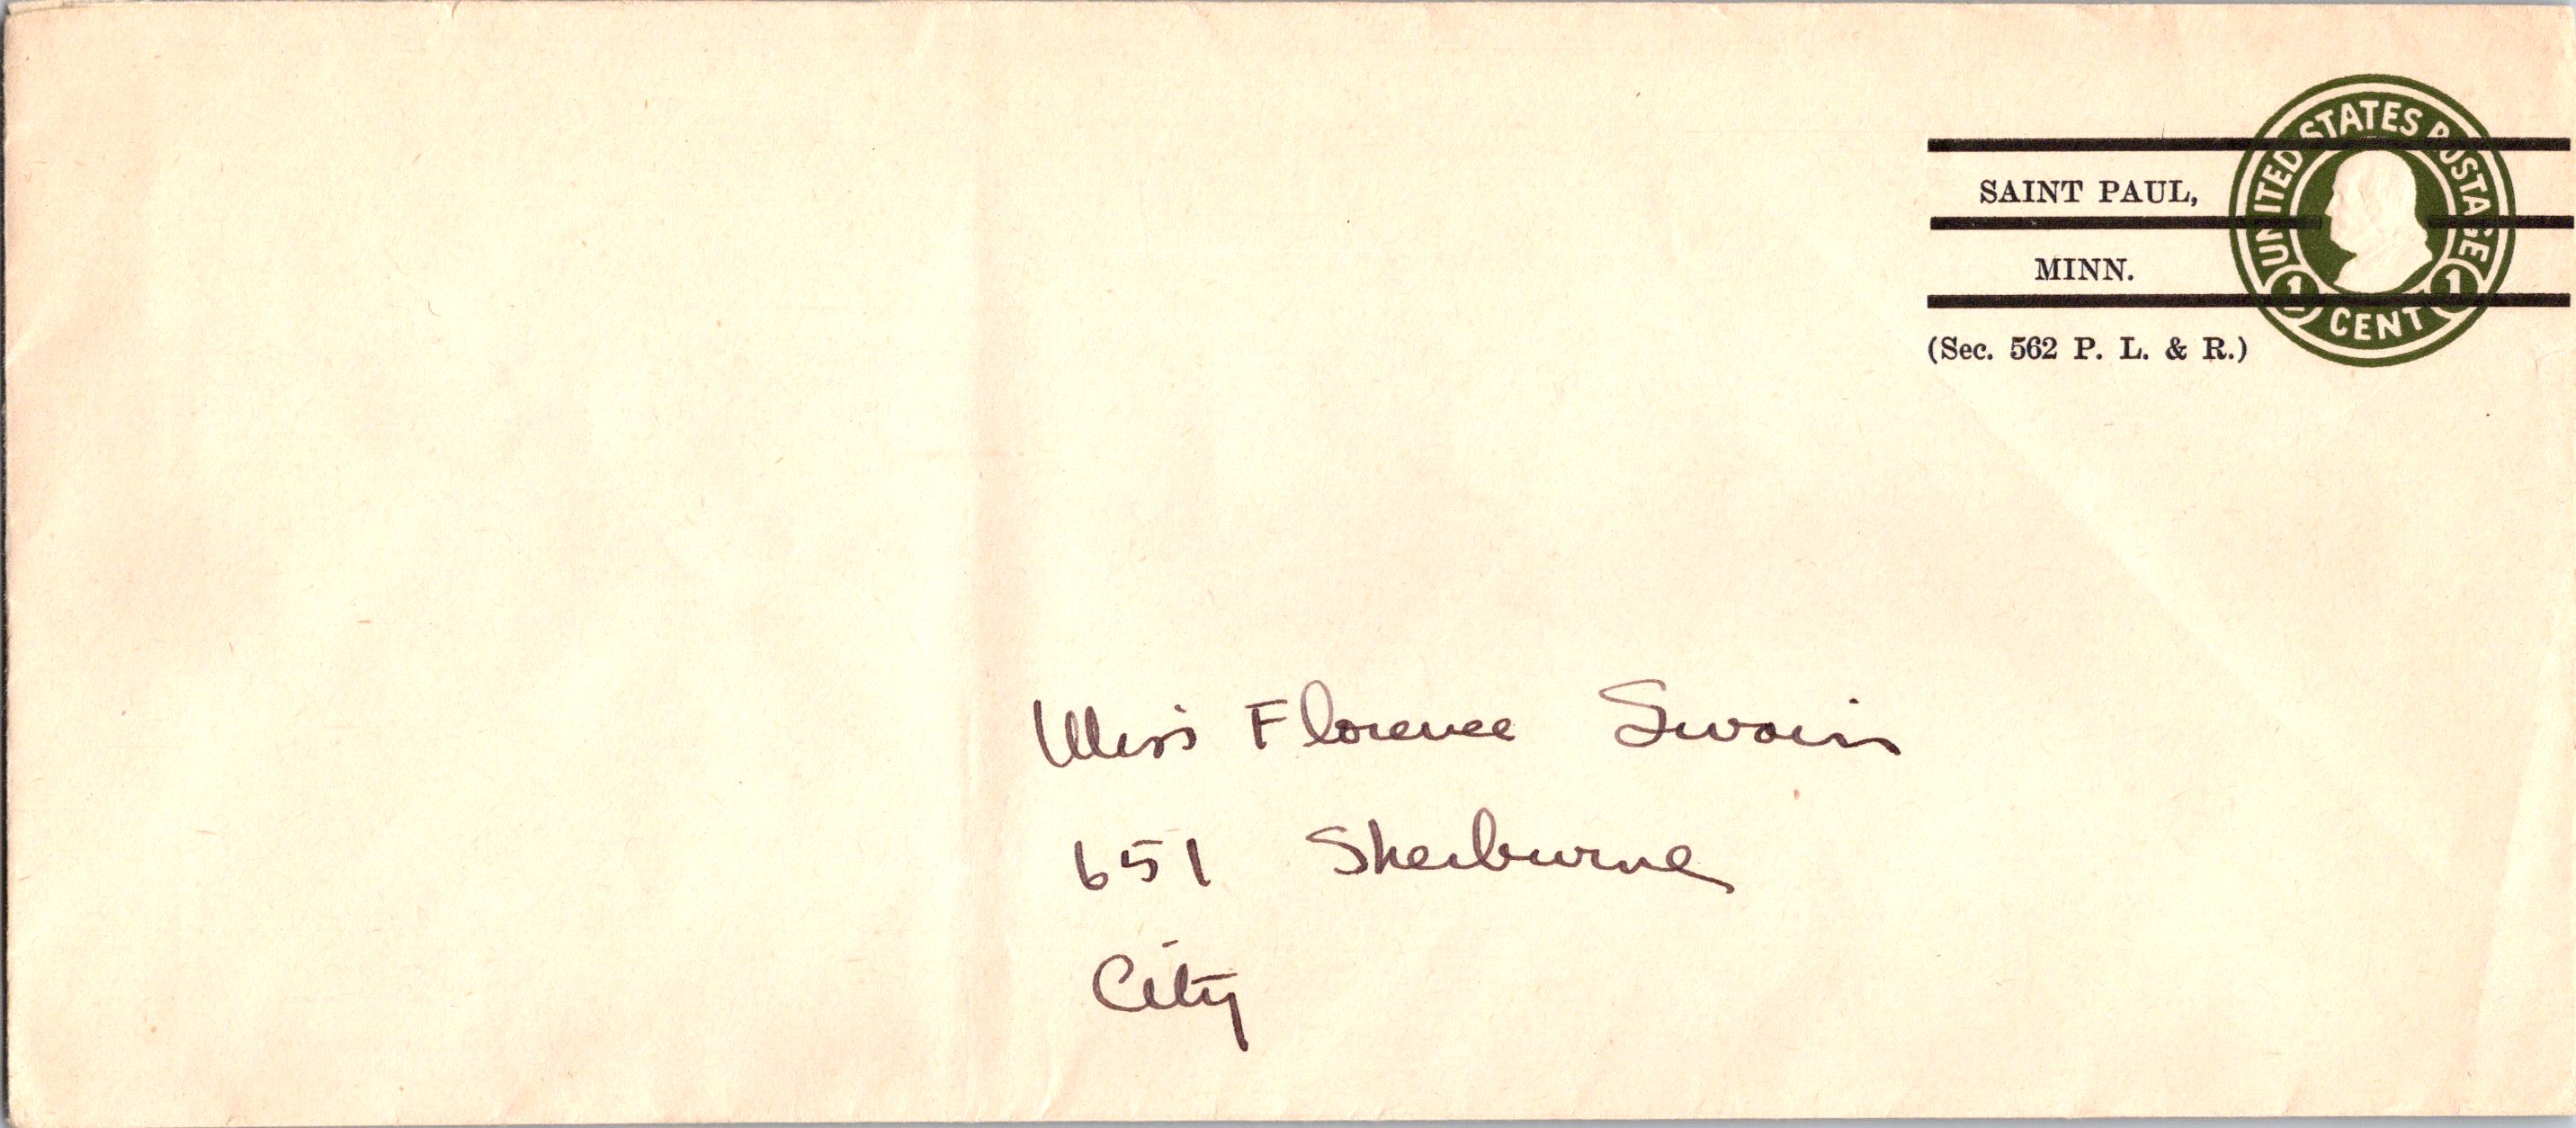 UNITED STATES POSTAGE
1 CENT 1
SAINT PAUL,
MINN.
(Sec. 562 P. L. & R.)
Miss Florence Swain
651 Sherburne
City